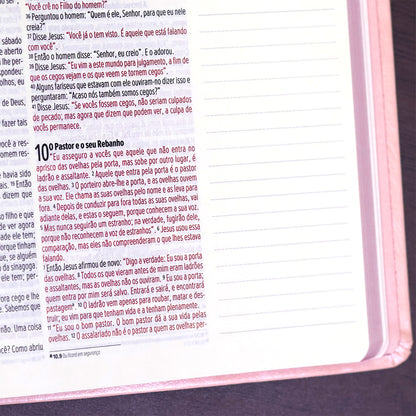 sábado
er aos
lhe per-
pondeu:
l dentro
de Deus,
fazer tais
ra a res-
res-
havia si-
filho e que
ver agora?
ade ele tem;
ele tem;
porque
se, a saber,
da sinagoga.
ade ele tem;
cego e lhes
ndeu: Uma coisa
ê? Como abriu
"Você crê no Filho do homem?"
36 Perguntou o homem: "Quem é ele, Senhor, para que eu nele
creia?"
37 Disse Jesus: "Você já o tem visto. É aquele que está falando
com você".
38 Então o homem disse: "Senhor, eu creio". E o adorou.
39 Disse Jesus: "Eu vim a este mundo para julgamento, a fim de
que os cegos vejam e os que veem se tornem cegos".
40 Alguns fariseus que estavam com ele ouviram-no dizer isso e
perguntaram: "Acaso nós também somos cegos?"
41 Disse Jesus: "Se vocês fossem cegos, não seriam culpados
de pecado; mas agora que dizem que podem ver, a culpa de
vocês permanece.
10º Pastor e o seu Rebanho
"Eu asseguro a vocês que aquele que não entra no
aprisco das ovelhas pela porta, mas sobe por outro lugar, é
ladrão e assaltante. 2 Aquele que entra pela porta é o pastor
das ovelhas. 3 O porteiro abre-lhe a porta, e as ovelhas ouvem
a sua voz. Ele chama as suas ovelhas pelo nome e as leva para
fora. 4 Depois de conduzir para fora todas as suas ovelhas, vai
adiante delas, e estas o seguem, porque conhecem a sua voz.
5 Mas nunca seguirão um estranho; na verdade, fugirão dele,
porque não reconhecem a voz de estranhos". 6 Jesus usou essa
comparação, mas eles não compreenderam o que lhes estava
falando.
7 Então Jesus afirmou de novo: "Digo a verdade: Eu sou a porta
das ovelhas. 8 Todos os que vieram antes de mim eram ladrões
e assaltantes, mas as ovelhas não os ouviram. 9 Eu sou a porta;
quem entra por mim será salvo. Entrará e sairá, e encontrará
pastagem. 10 O ladrão vem apenas para roubar, matar e des-
truir; eu vim para que tenham vida e a tenham plenamente.
11 "Eu sou o bom pastor. O bom pastor dá a sua vida pelas
ovelhas. 12 O assalariado não é o pastor a quem as ovelhas per-
10.9 Ou ficará em segurança